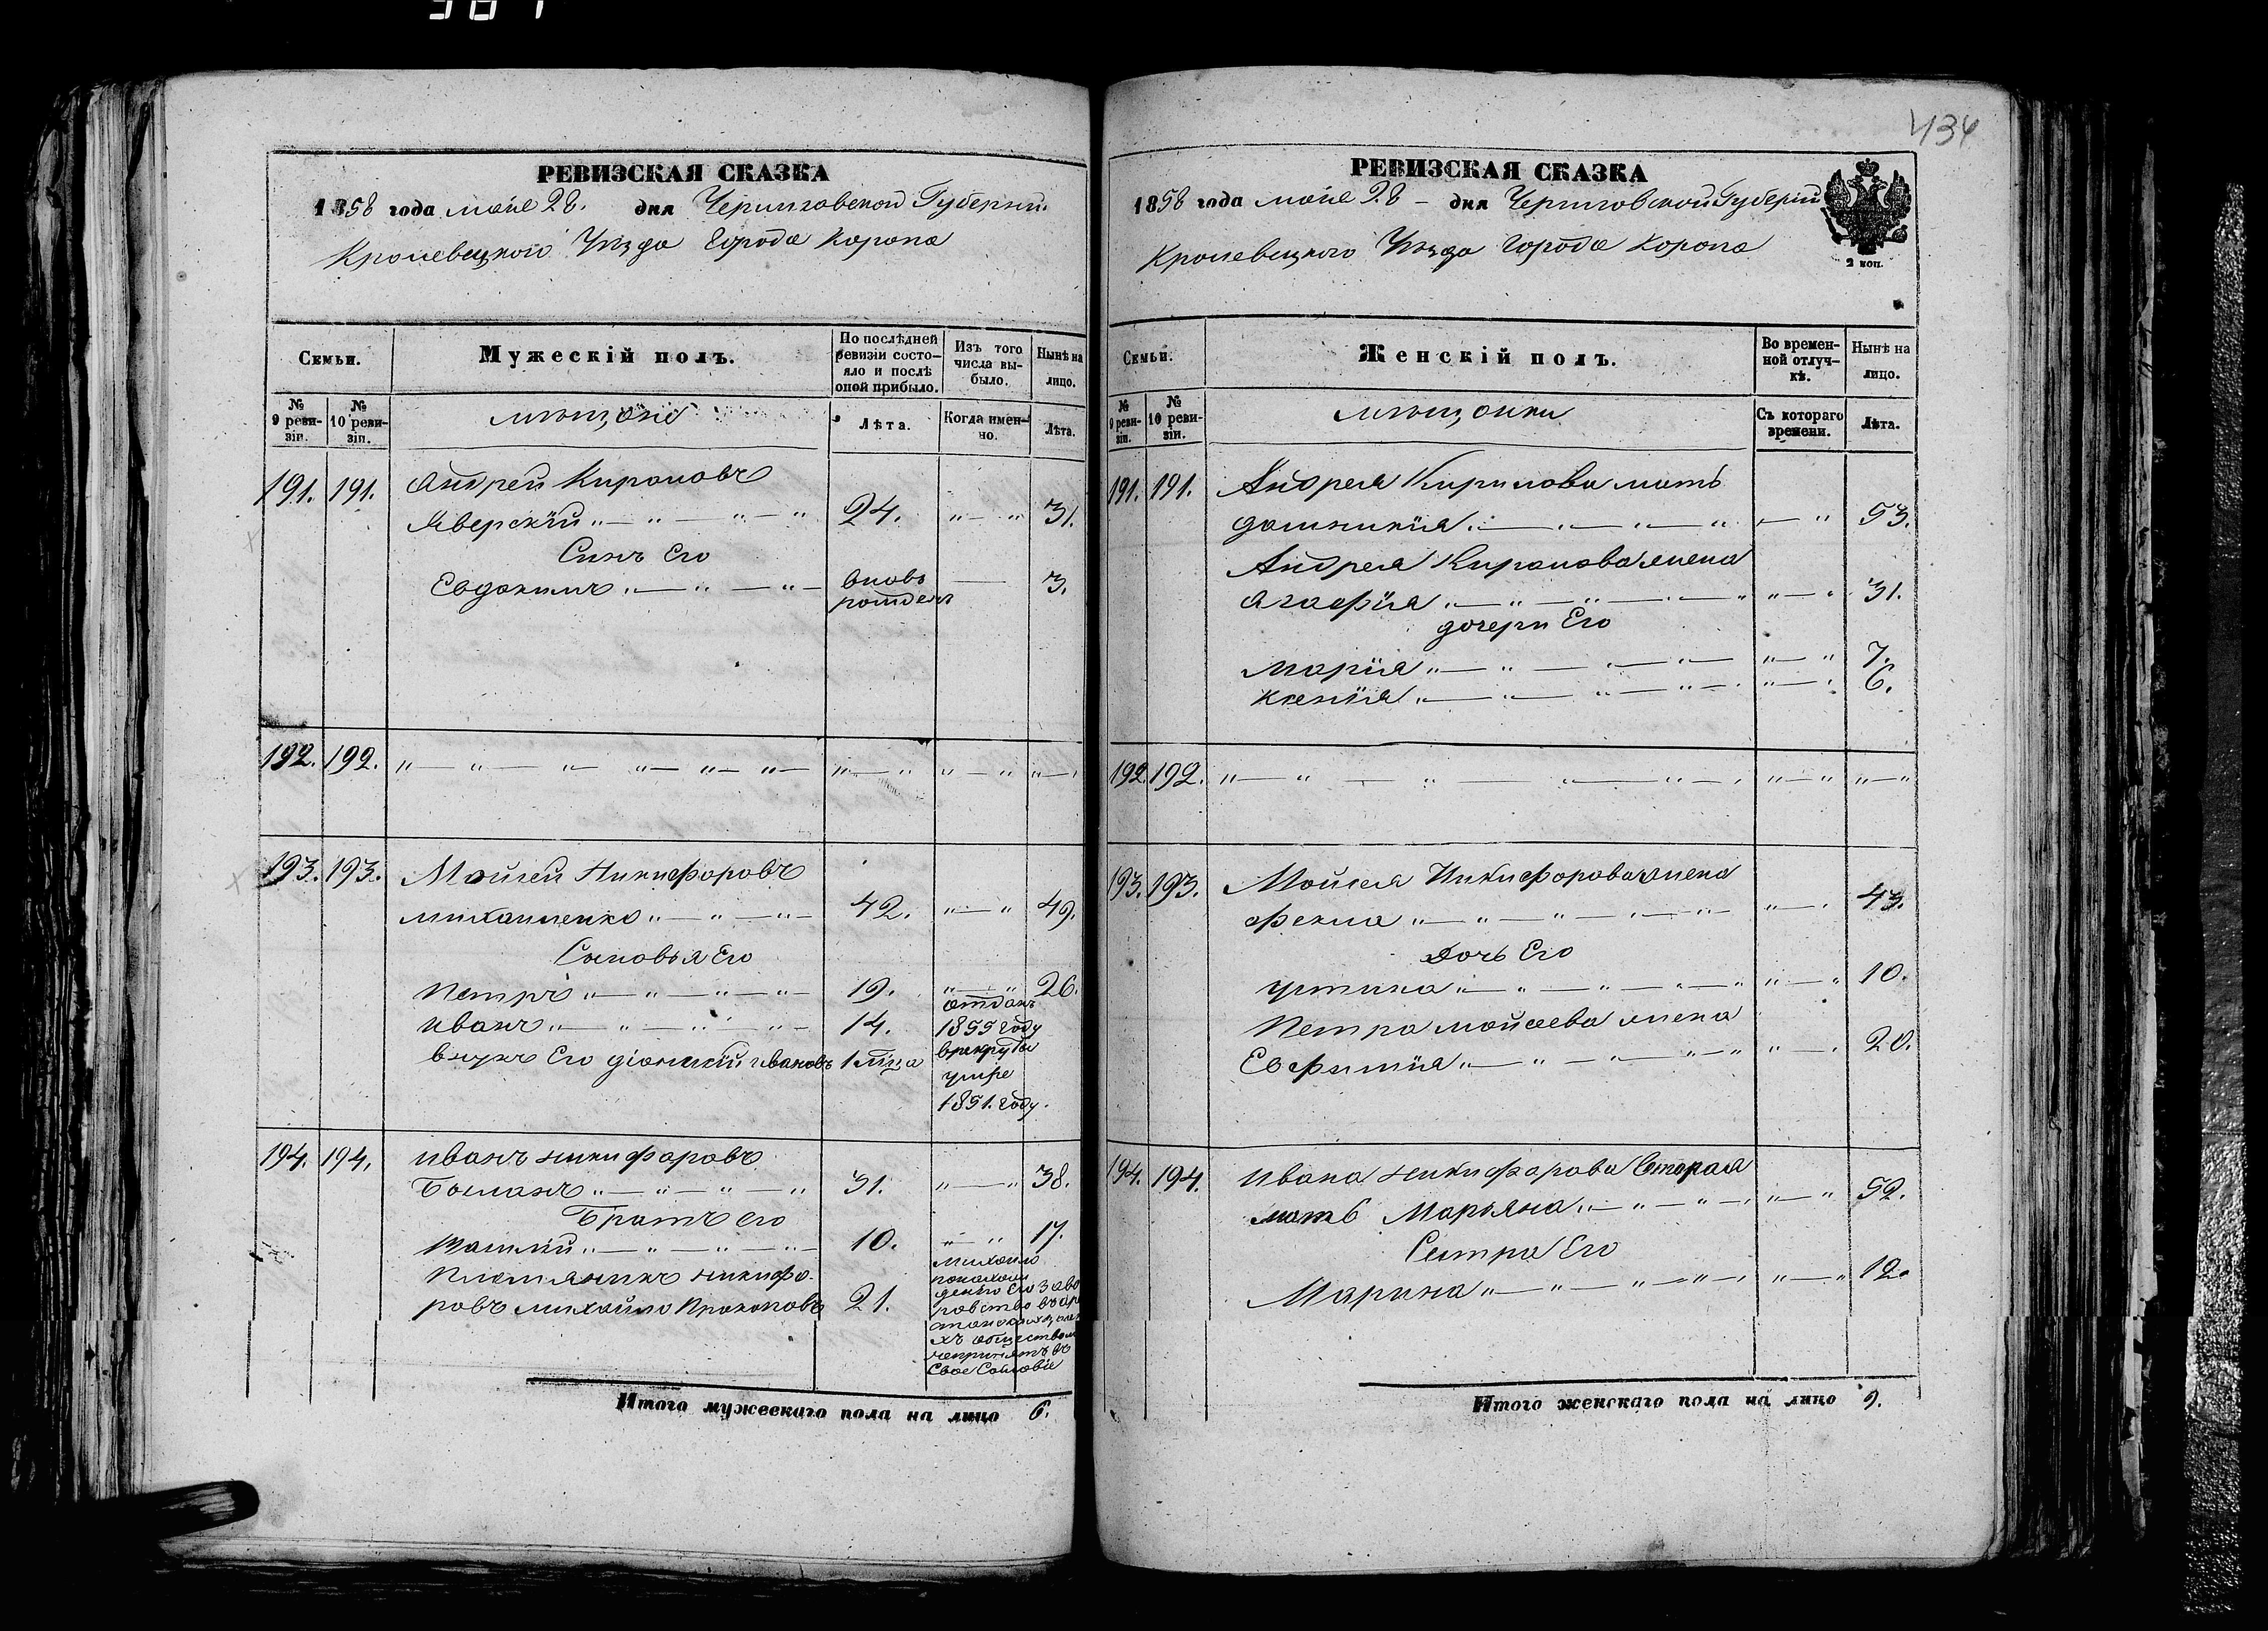 387
434
РЕВИЗСКАЯ СКАЗКА
1858 года мая 28. дня Черниговской Губернии.
Кролевецкого Уѣзда Города Коропа
Семьи.
Мужескій полъ.
По послѣдней ревизіи состо-
яло и послѣ
оной прибыло.
Изъ того
числа вы-
было.
Нынѣ на
лицо.
№
9 реви-
зіи.
№
10 реви-
зіи.
мѣщане
Лѣта.
Когда имен-
но.
Лѣта.
191. 191. Андрей Кириловъ
Яверскій „ — „ — „ — „ 24. „ — „ 31.
Сынъ Его
Евдокимъ „ — „ — „ — вновь — 3.
рожденъ
192. 192. „ — „ — „ — „ — „ — „ — „ — „ „ — „ „ — „
193. 193. Мойсей Никифоровъ
Михайленко „ — „ — „ — 42. „ — „ 49.
Сыновья Его
Петръ „ — „ — „ — „ — 19. „ — „ 26.
Иванъ „ — „ — „ — „ — 14. отданъ
1855 году
врекруты
внукъ Его діонисій Ивановъ 1 мѣсяца умре
1851. году.
194. 194. Иванъ Никифоровъ
Боиланъ „ — „ — „ — „ 31. „ — „ 38.
Братъ его
Василій „ — „ — „ — „ — 10. „ — „ 17.
Племянникъ Никифо-
ровъ Михайло Прокоповъ 21. Михайло
обществомъ
непринятъ въ
Свое Сословіе
Итого мужескаго пола на лицо 6.
РЕВИЗСКАЯ СКАЗКА
1858 года мая 28 — дня Черниговской Губерніи
Кролевецкого Уѣзда Города Коропа
2 коп.
Семьи.
Женскій полъ.
Во времен-
ной отлуч-
кѣ.
Нынѣ на
лицо.
№
9 реви-
зіи.
№
10 реви-
зіи.
мѣщанки
Съ котораго
времени.
Лѣта.
191. 191. Андрея Кирилова мать
домникія „ — „ — „ — „ „ — „ 53.
Андрея Кирилова жена
Агафія „ — „ — „ — „ — „ „ — „ 31.
дочери Его
Марія „ — „ — „ — „ — „ — „ 7.
Ксенія „ — „ — „ — „ — „ — „ 6.
192. 192. „ — „ — „ — „ — „ — „ „ — „ „ — „
193. 193. Мойсея Никифорова жена
Фекла „ — „ — „ — „ — „ — „ — „ 43.
Дочь Его
Устина „ — „ — „ — „ — „ „ — „ 10.
Петра Мойсеева жена
Евфимія „ — „ — „ — „ — „ „ — „ 20.
194. 194. Ивана Никифорова Вторая
мать Маріяна „ — „ — „ — „ „ — „ 52.
Сестра Его
Марина „ — „ — „ — „ — „ „ — „ 12.
Итого женскаго пола на лицо 9.